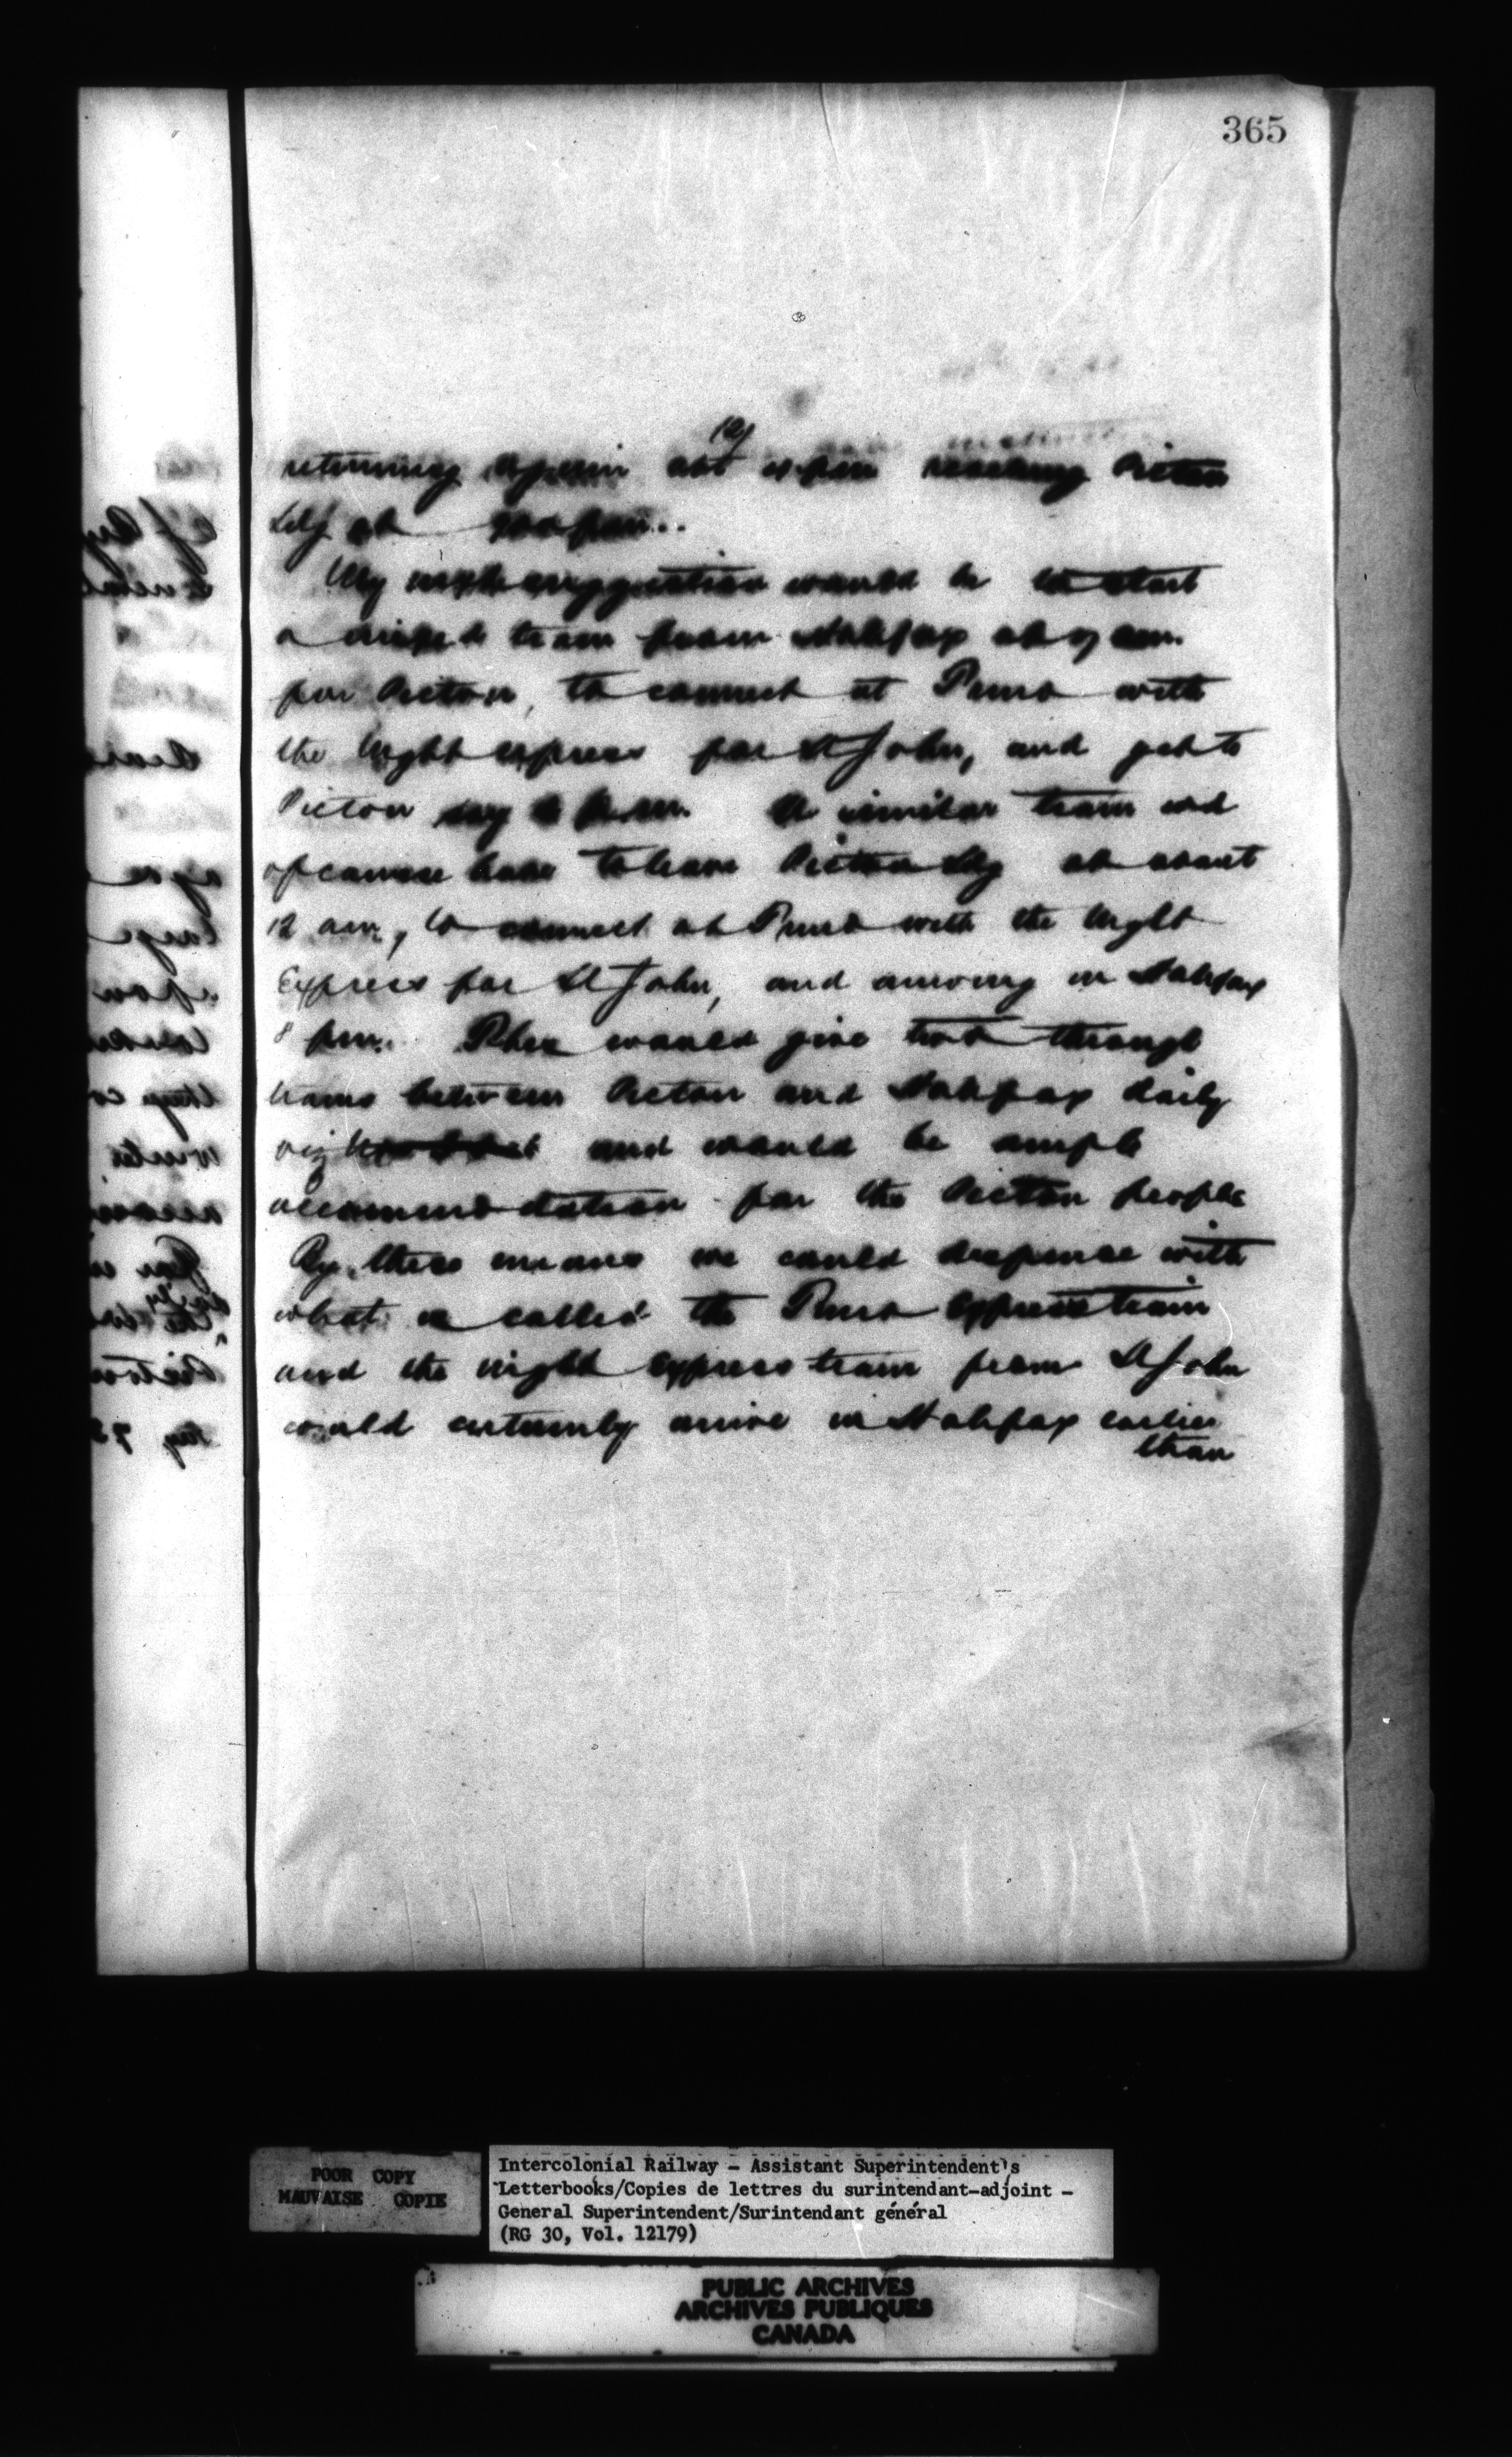 365
12/
returning again at pm reaching Picton
Ldg at pm.
My next suggestion would be to start
a mixed train from Halifax at 7 am.
for Picton, to connect at Truro with
the Night express for St John, and get to
Picton say p.m. A similar train wd
of course have to leave Picton Ldg at about
12 am, to connect at Truro with the Night
Express for St John, and arriving in Halifax
8 pm. This would give two through
trains between Picton and Halifax daily
viz and would be ample
accommodation for the Picton people
By these means we could dispense with
what is called the Truro Express train
and the night Express train from St John
could certainly arrive in Halifax earlier
than
POOR COPY
MAUVAISE COPIE
Intercolonial Railway - Assistant Superintendent's
Letterbooks/Copies de lettres du surintendant-adjoint -
General Superintendent/Surintendant général
(RG 30, Vol. 12179)
PUBLIC ARCHIVES
ARCHIVES PUBLIQUES
CANADA